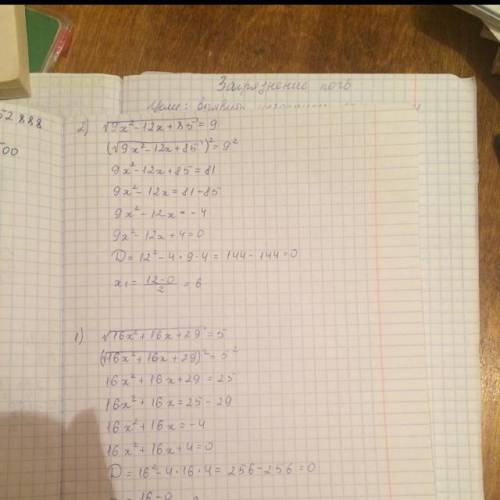 Загрязнение почв
Цели: выявить
52 888
500
2) √9x²-12x+85 = 9
(√9x²-12x+85)² = 9²
9x²-12x+85 = 81
9x²-12x = 81-85
9x²-12x = -4
9x²-12x+4=0
D = 12²-4·9·4 = 144-144=0
x₁ = (12-0)/2 = 6
1) √16x²+16x+29 = 5
(√16x²+16x+29)² = 5²
16x²+16x+29 = 25
16x²+16x = 25-29
16x²+16x = -4
16x²+16x+4=0
D = 16²-4·16·4 = 256-256=0